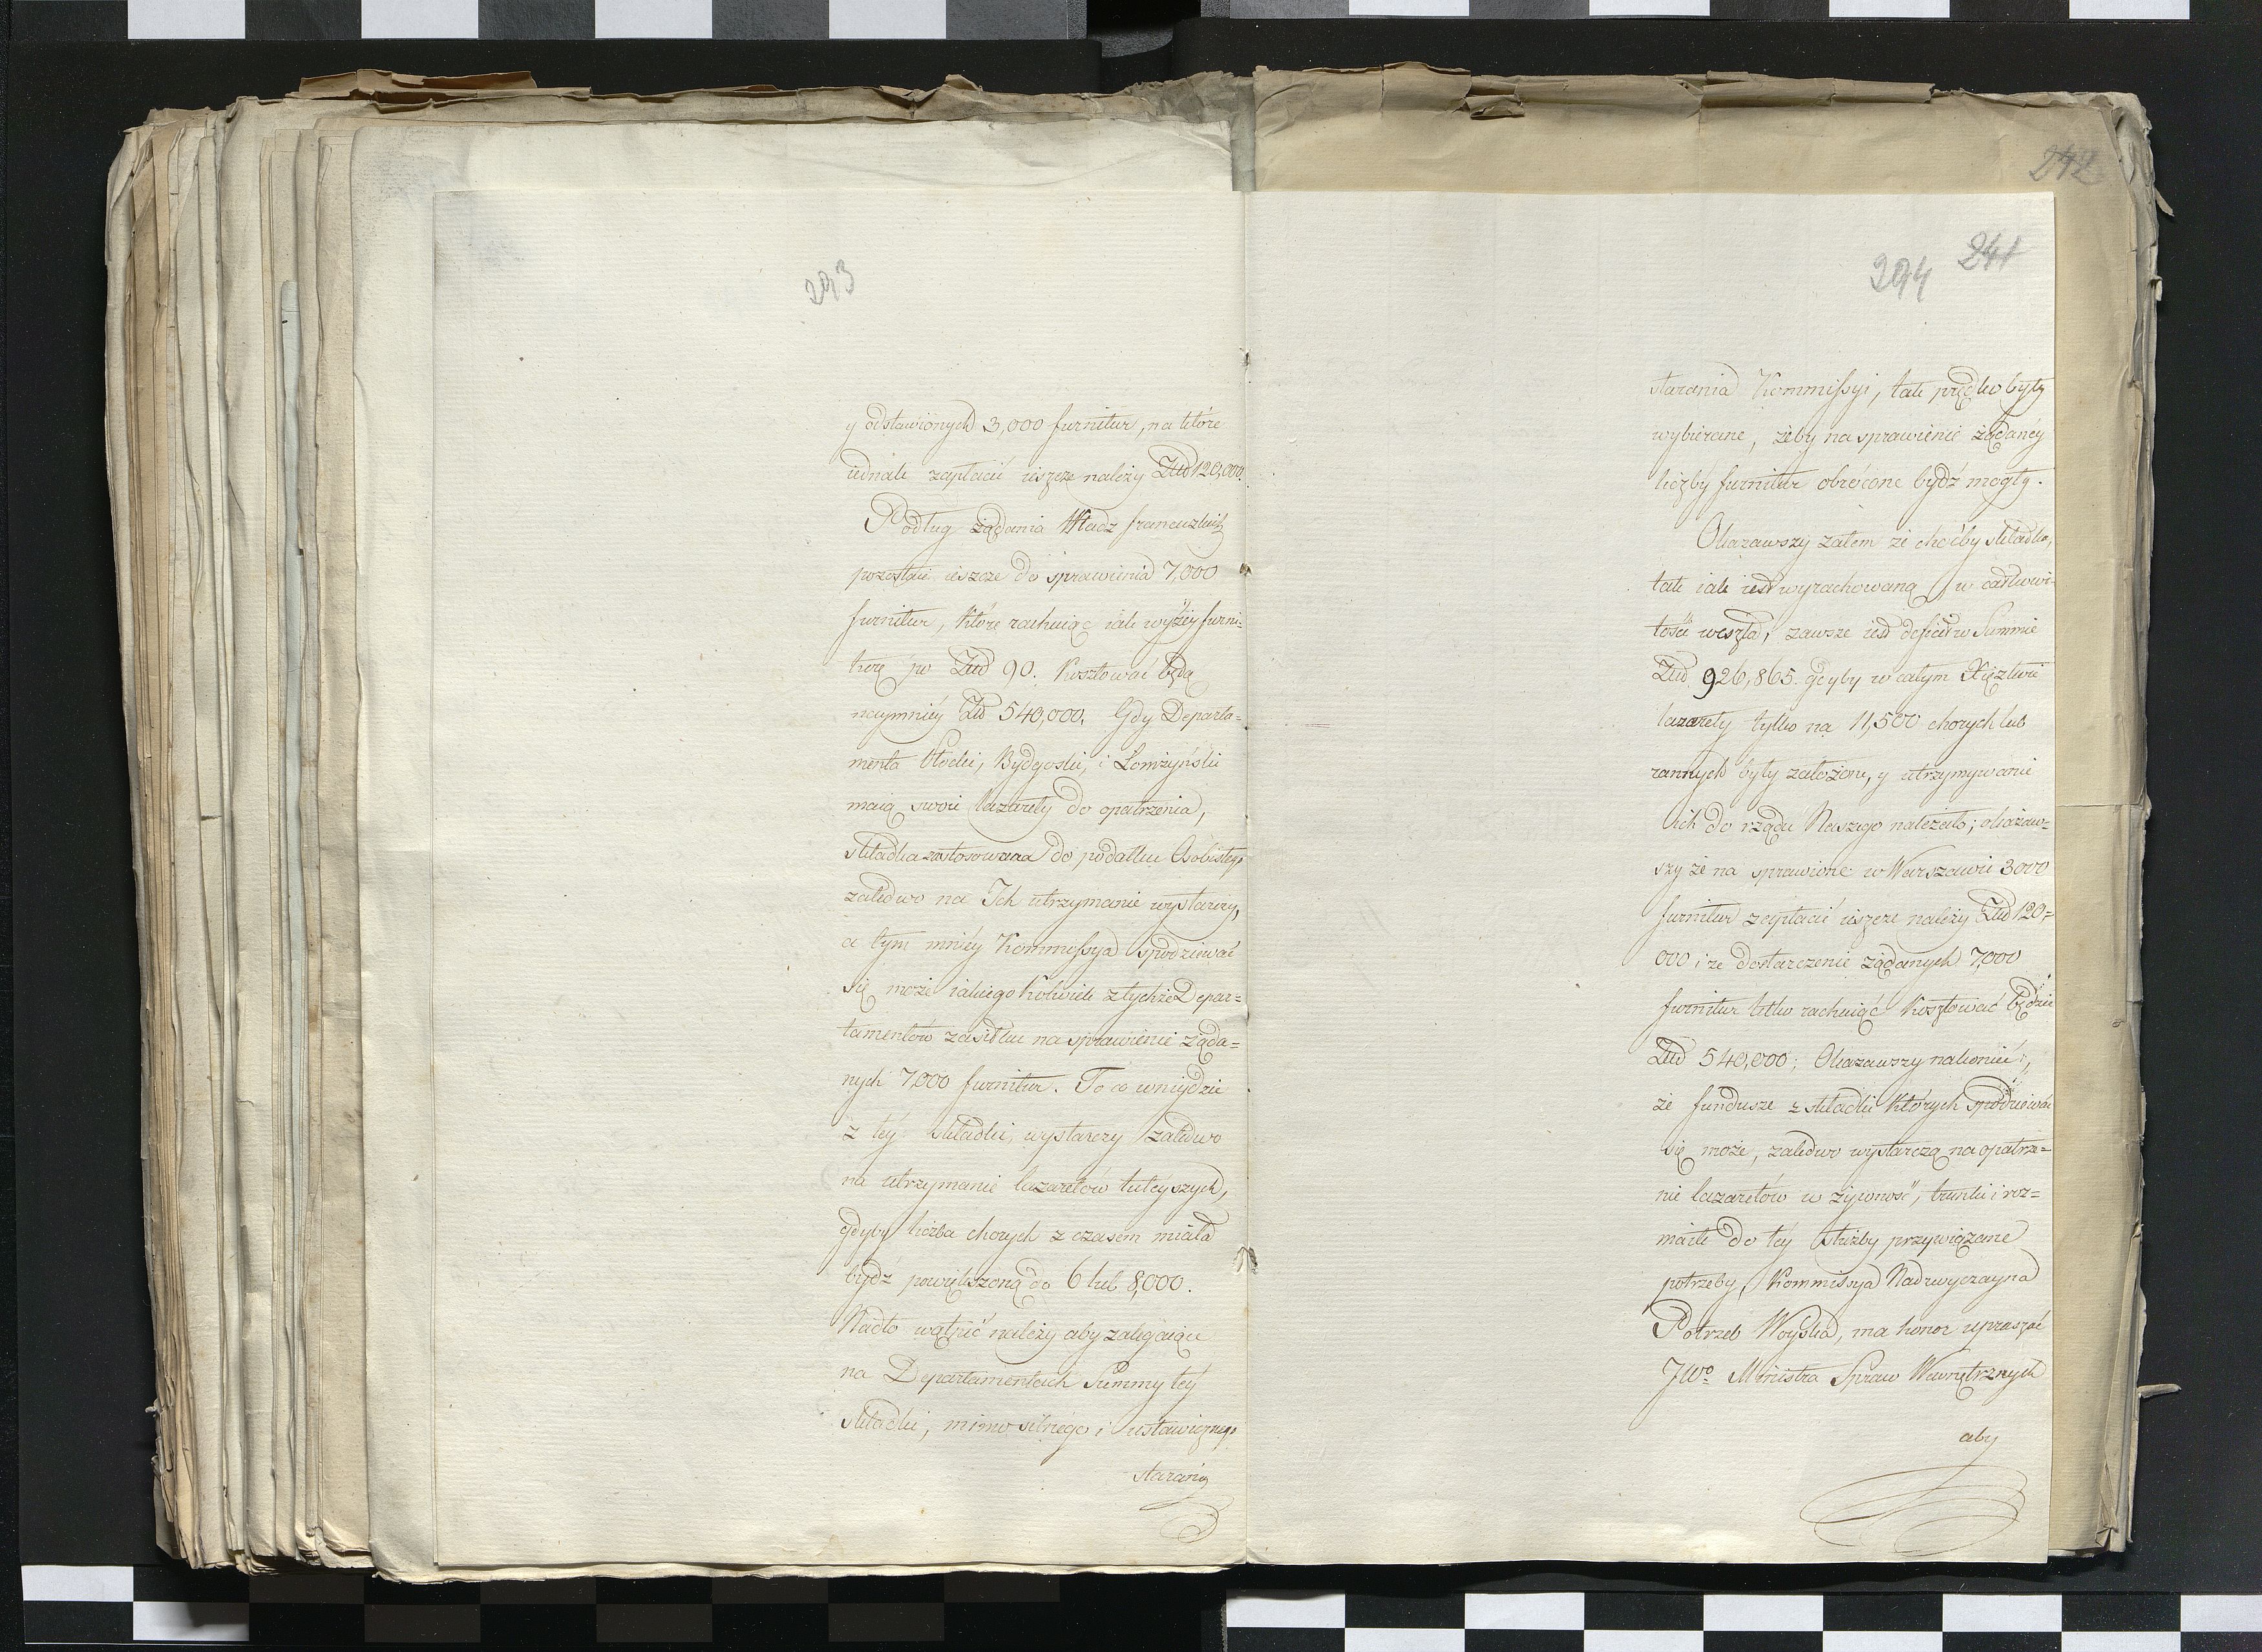 293
y odstawionych 3,000 furnitur, na które
iednak zapłacić ieszcze należy Złł 120,000.
Podług żądania Władz francuzkich
pozostaie ieszcze do sprawienia 7,000
furnitur, które rachuiąc iak wyżey furni-
turę po Złł 90. kosztować będą
naymniéy Złł 540,000. Gdy Departa=
menta Płocki, Bydgoski, i Łomżyński
maią swoie lazarety do opatrzenia,
składka zastosowana do podatku Osobistego
zaledwo na Ich utrzymanie wystarczy,
a tym mniéy Kommissya spodziewać
się może iakiego kolwiek z tychże Depar=
tamentów zasiłku na sprawienie żąda=
nych 7,000 furnitur. To co wniydzie
z téy składki, wystarczy zaledwo
na utrzymanie lazaretów tuteyszych,
gdyby liczba chorych z czasem miała
bydź powiększoną do 6 lub 8,000.
Nadto wątpić należy aby zalegaiące
na Departamentach Summy téy
składki, mimo silnego i ustawicznego
starania
242
294 241
starania Kommissyi, tak prędko były
wybierane, żeby na sprawienie żądanéy
liczby furnitur obrócone bydź mogły.
Okazawszy zatem że choćby składka,
tak iak iest wyrachowaną w całkowi-
tości weszła, zawsze iest deficit w Summie
Złł 926,865. gdyby w całym Xięztwie
lazarety tylko na 11,500 chorych lub
rannych były założone, y utrzymywanie
ich do rządu Naszego należało; okazaw=
szy że na sprawione w Warszawie 3000
furnitur zapłacić ieszcze należy Złł 120,=
000 i że dostarczenie żądanych 7,000
furnitur tylko rachuiąc kosztować będzie
Złł 540,000; Okazawszy nakoniec,
że fundusze z składki których spodziewać
się może, zaledwo wystarczą na opatrze=
nie lazaretów w żywność, trunki i roz=
maite do téy służby przywiązane
potrzeby, Kommissya Nadzwyczayna
Potrzeb Woyska, ma honor upraszać
JWo. Ministra Spraw Wewnętrznych
aby